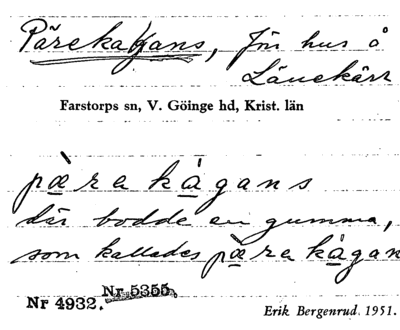 Pärekagans, f̶ö̶r̶ hus å
Länekärr
Farstorps sn, V. Göinge hd, Krist. län
pæ̀ra kágans
där bodde en gumma,
som kallades pæ̀ra kágan
Nr 4932. Nr 5355.
Erik Bergenrud 1951.